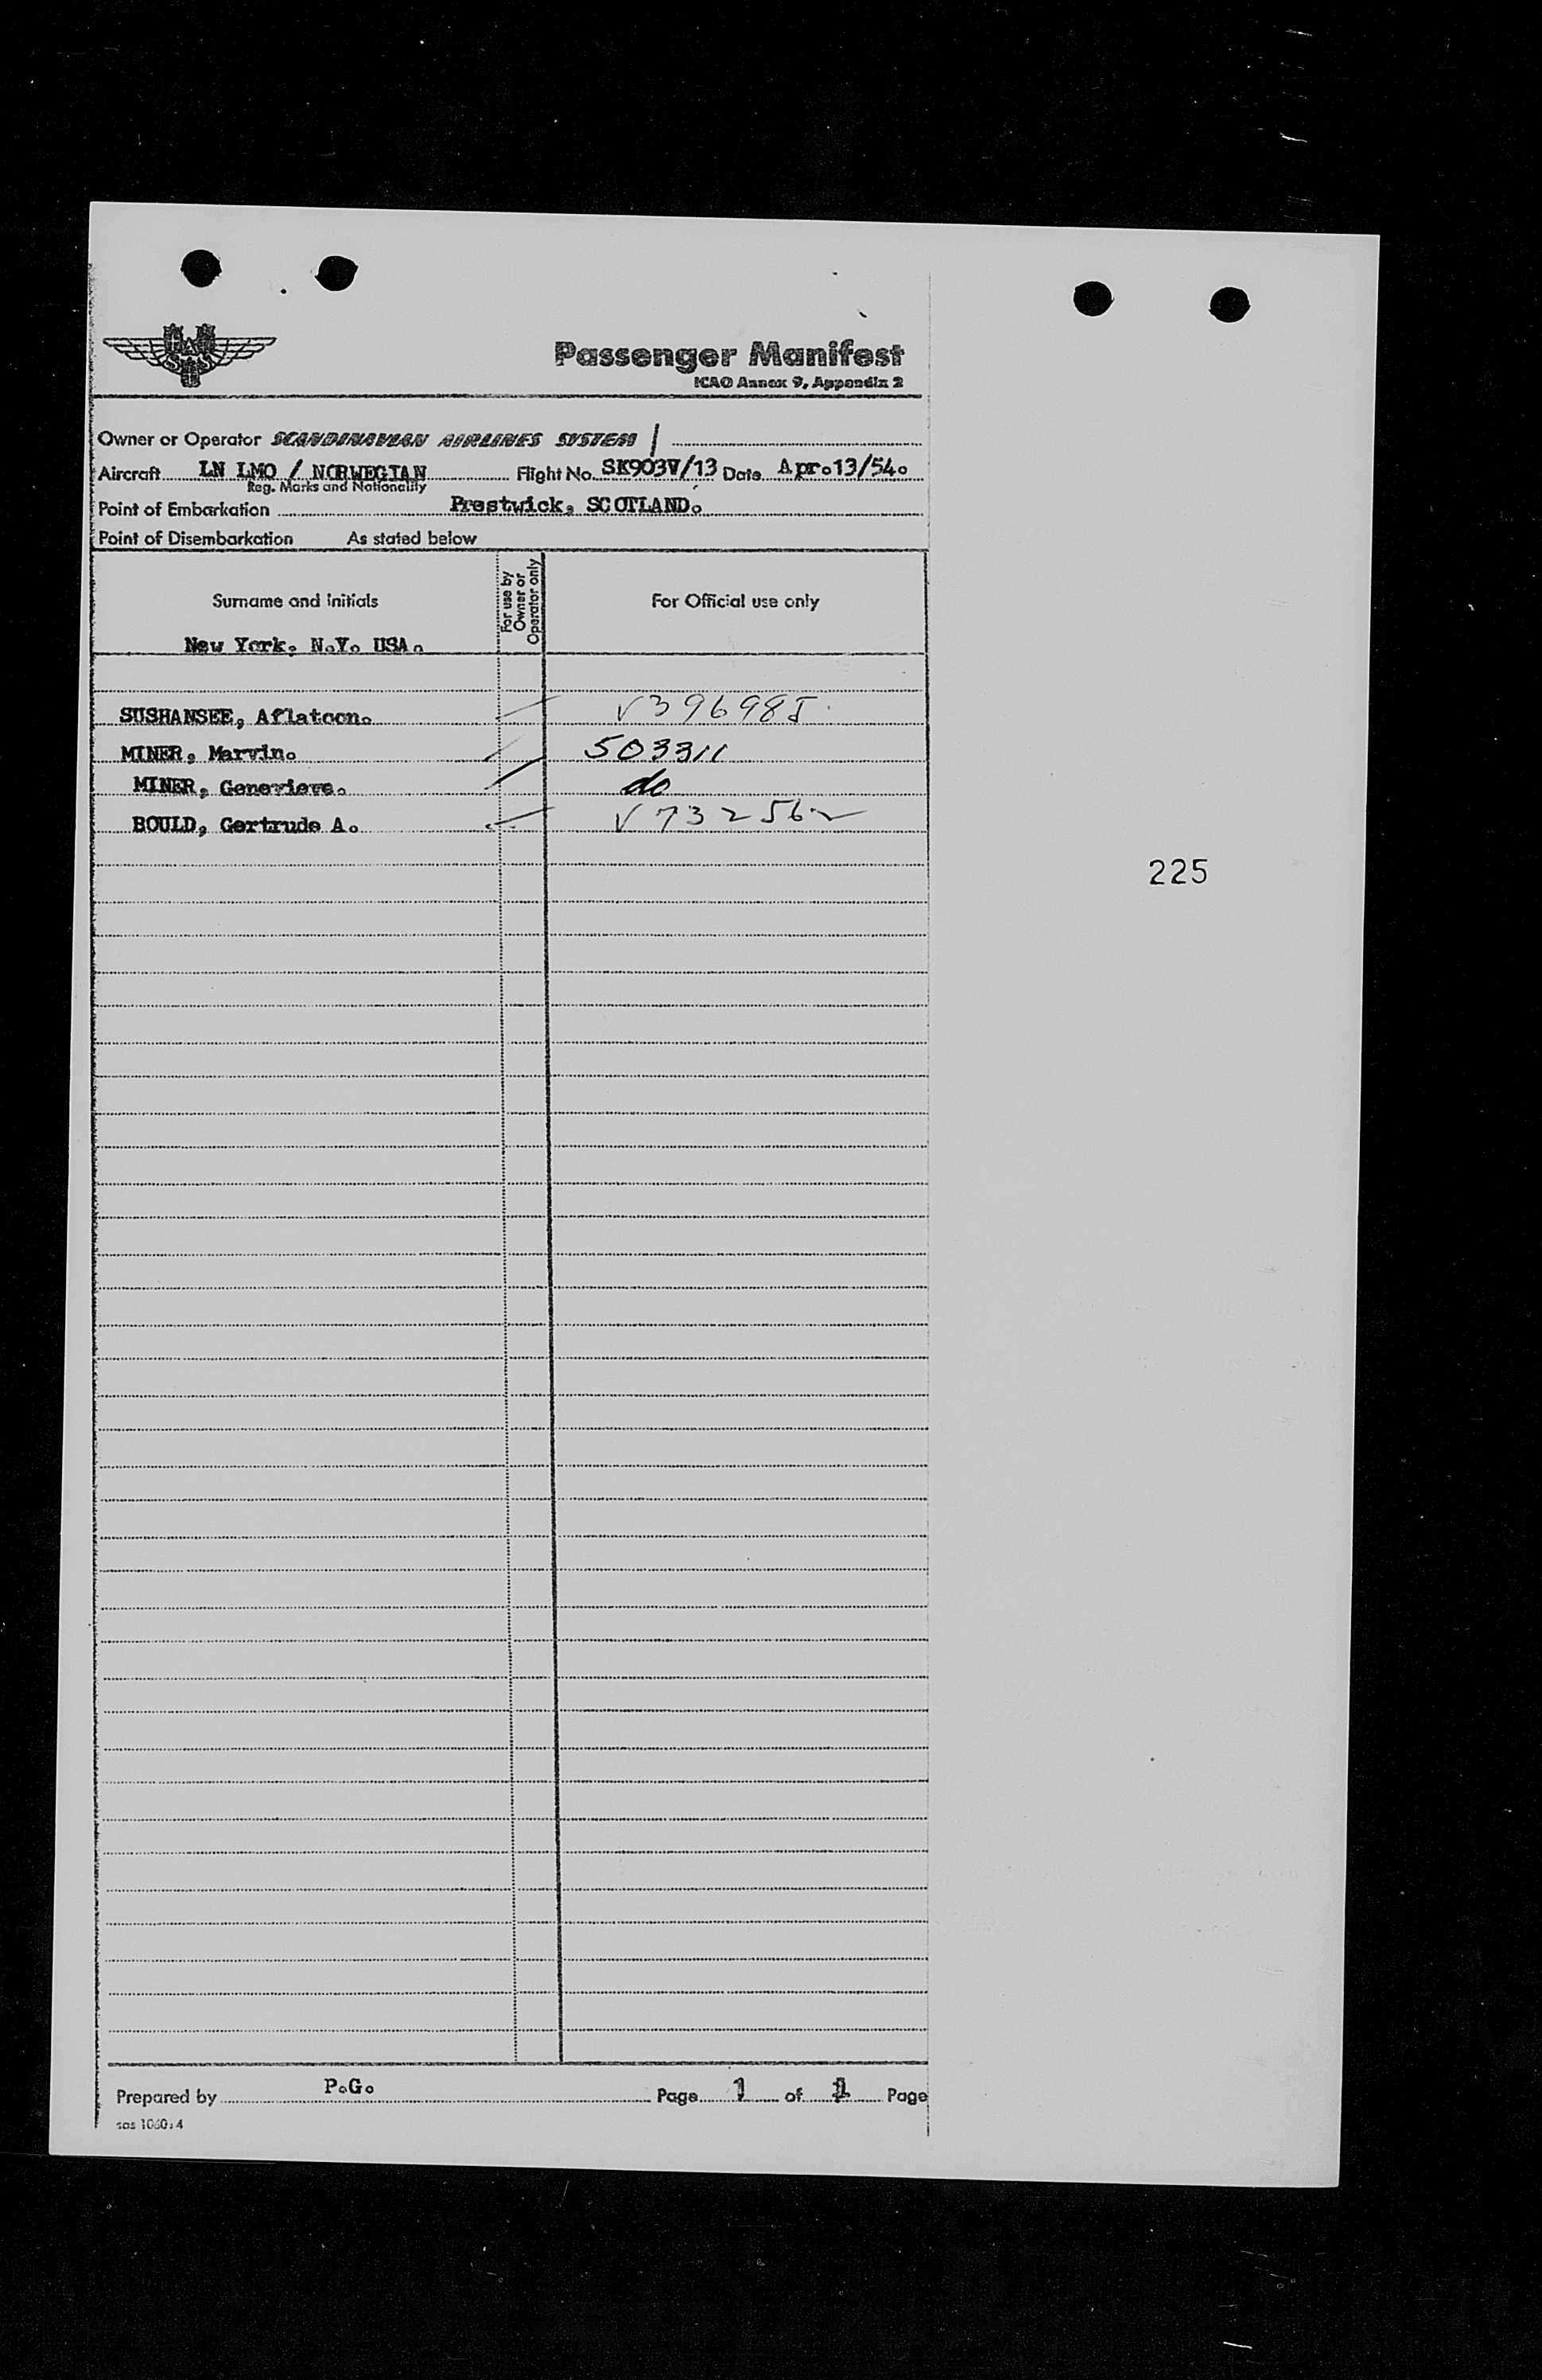 SAS
Passenger Manifest
ICAO Annex 9, Appendix 2
Owner or Operator SCANDINAVIAN AIRLINES SYSTEM
Aircraft LN LMO / NORWEGIAN Flight No. SK903V/13 Date Apr.13/54.
Reg. Marks and Nationality
Point of Embarkation Prestwick, SCOTLAND.
Point of Disembarkation As stated below
Surname and initials
For use by Owner or Operator only
For Official use only
New York, N.Y. USA.
SUSHANSEE, Aflatoon. V396985
MINER, Marvin. 503311
MINER, Genevieve. do
BOULD, Gertrude A. V732562
225
Prepared by P.G. Page 1 of 1 Page
sas 1060:4